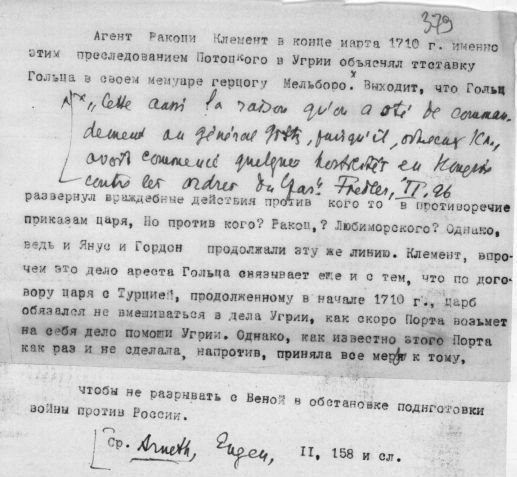 379
Агент Ракоци Клемент в конце марта 1710 г. именно
этим преследованием Потоцкого в Угрии объяснял ттставку
Гольца в своем мемуаре герцогу Мельборо.x Выходит, что Гольц
x „Cette aussi la raison qu'on a oté de comman-
dement au général Goltz, puisqu'il,
avoit commencé quelques hostilités en Hongrie
contre les ordres du Czar". Fiedler, II, 26
развернул враждебные действия против кого то в противоречие
приказам царя, Но против кого? Ракоц,? Любиморского? Однако,
ведь и Янус и Гордон продолжали эту же линию. Клемент, впро-
чем это дело ареста Гольца связывает еще и с тем, что по дого-
вору царя с Турцией, продолженному в начале 1710 г., царь
обязался не вмешиваться в дела Угрии, как скоро Порта возьмет
на себя дело помощи Угрии. Однако, как известно этого Порта
как раз и не сделала, напротив, приняла все меры к тому,
чтобы не разрывать с Веной в обстановке подиготовки
войны против России.
Ср. Arneth, Eugen, II, 158 и сл.